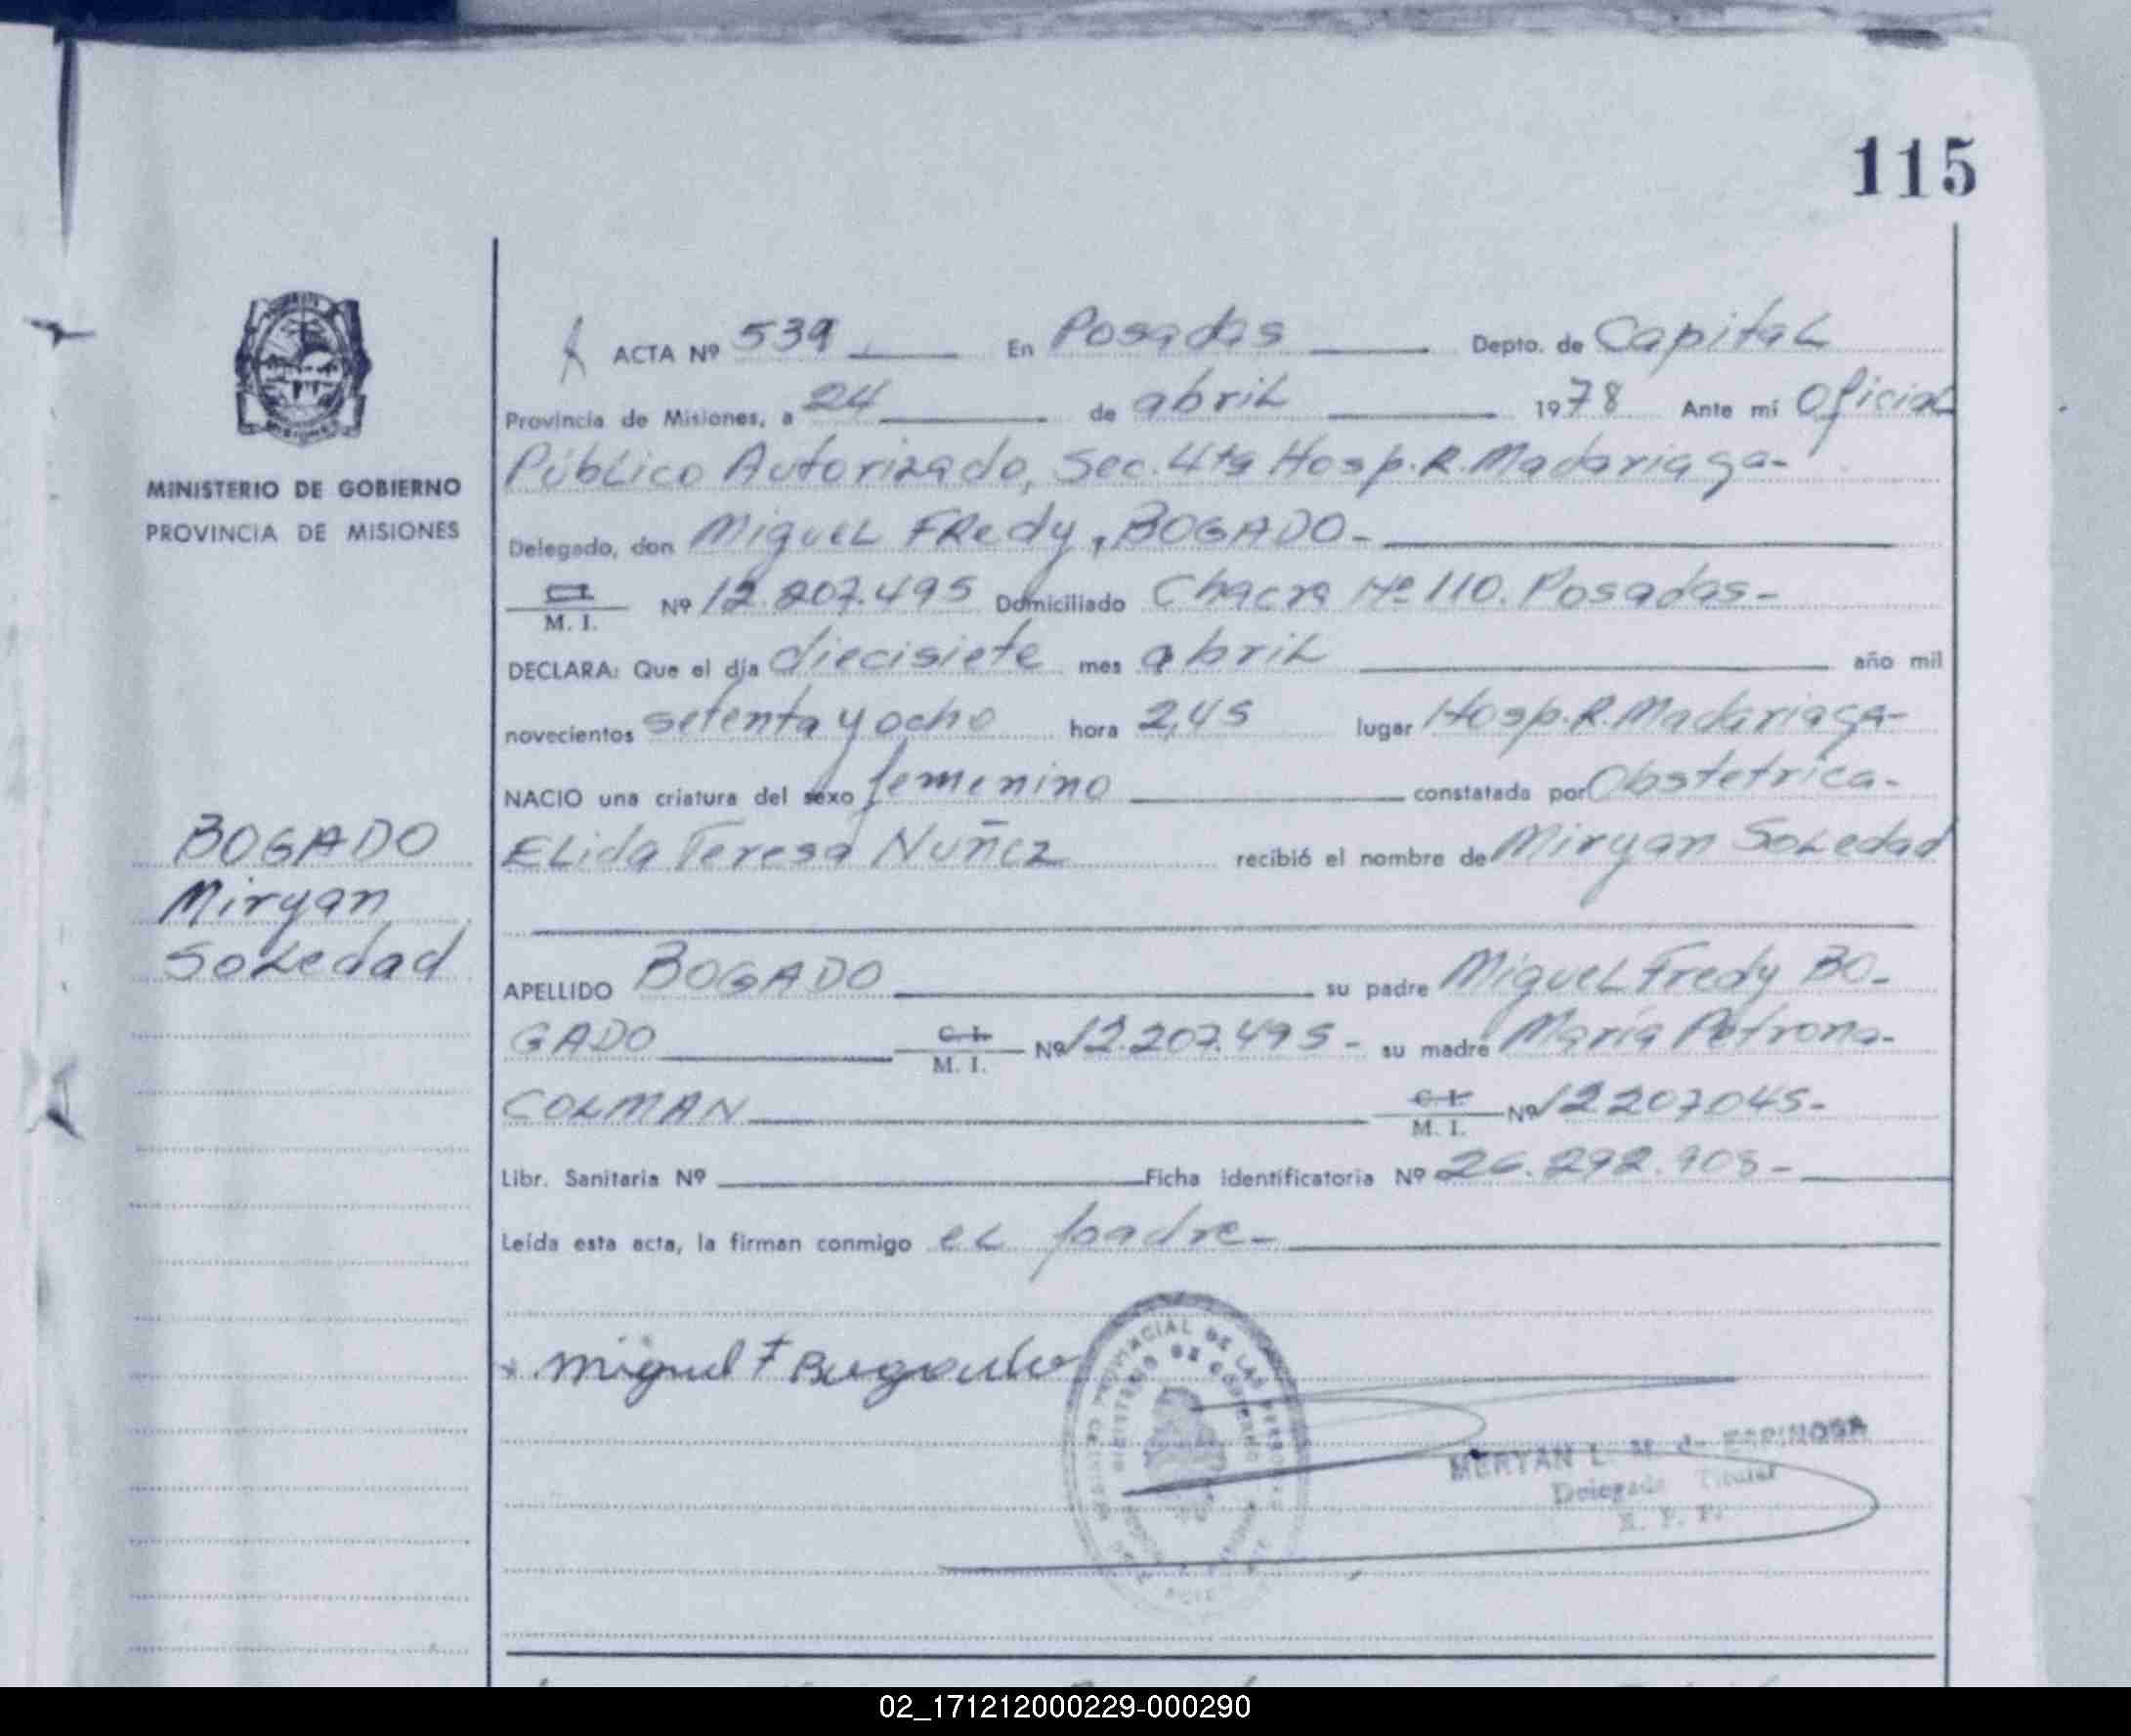 115
ACTA Nº 539 En Posadas Depto. de Capital
Provincia de Misiones, a 24 de abril 1978 Ante mí Oficial
Público Autorizado, Sec. 4ta Hosp. R. Madariaga-
Delegado, don Miguel FRedy, BOGADO-
C.I.
M. I. Nº 12.207.495 Domiciliado Chacra Nº 110. Posadas-
DECLARA: Que el día diecisiete mes abril año mil
novecientos setenta y ocho hora 2,45 lugar Hosp. R. Madariaga-
NACIO una criatura del sexo femenino constatada por Obstetrica-
Elida Teresa Nuñez recibió el nombre de Miryan Soledad
APELLIDO BOGADO su padre Miguel Fredy BO-
GADO C. I.
M. I. Nº 12.207.495- su madre María Petrona-
COLMAN C. I.
M. I. Nº 12207045-
Libr. Sanitaria Nº Ficha identificatoria Nº 26.292.905-
Leída esta acta, la firman conmigo el padre-
Miguel F Bogado
MERYAN L. M. de ESPINOSA
Delegada Titular
MINISTERIO DE GOBIERNO
PROVINCIA DE MISIONES
BOGADO
Miryan
Soledad
02_171212000229-000290